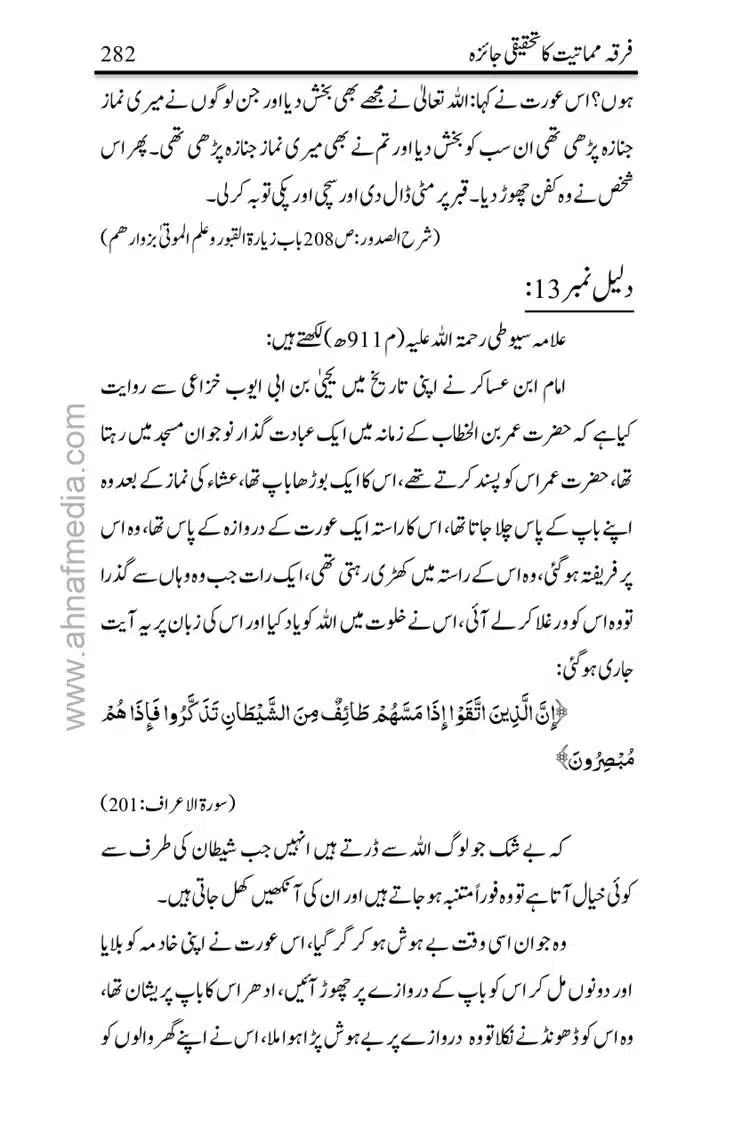 فرقہ مماتیت کا تحقیقی جائزہ 282
ہوں؟ اس عورت نے کہا: اللہ تعالیٰ نے مجھے بھی بخش دیا اور جن لوگوں نے میری نماز
جنازہ پڑھی تھی ان سب کو بخش دیا اور تم نے بھی میری نماز جنازہ پڑھی تھی۔ پھر اس
شخص نے وہ کفن چھوڑ دیا۔ قبر پر مٹی ڈال دی اور سچی اور پکی توبہ کر لی۔
(شرح الصدور: ص208 باب زیارۃ القبور و علم الموتیٰ بزوارھم)
دلیل نمبر 13:
علامہ سیوطی رحمۃ اللہ علیہ (م 911ھ) لکھتے ہیں:
امام ابن عساکر نے اپنی تاریخ میں یحییٰ بن ابی ایوب خزاعی سے روایت
کیا ہے کہ حضرت عمر بن الخطاب کے زمانہ میں ایک عبادت گذار نوجوان مسجد میں رہتا
تھا، حضرت عمر اس کو پسند کرتے تھے، اس کا ایک بوڑھا باپ تھا، عشاء کی نماز کے بعد وہ
اپنے باپ کے پاس چلا جاتا تھا، اس کا راستہ ایک عورت کے دروازہ کے پاس تھا، وہ اس
پر فریفتہ ہو گئی، وہ اس کے راستہ میں کھڑی رہتی تھی، ایک رات جب وہ وہاں سے گذرا
تو وہ اس کو ورغلا کر لے آئی، اس نے خلوت میں اللہ کو یاد کیا اور اس کی زبان پر یہ آیت
جاری ہو گئی:
﴿إِنَّ الَّذِينَ اتَّقَوْا إِذَا مَسَّهُمْ طَائِفٌ مِنَ الشَّيْطَانِ تَذَكَّرُوا فَإِذَا هُمْ
مُبْصِرُونَ﴾
(سورۃ الاعراف: 201)
کہ بے شک جو لوگ اللہ سے ڈرتے ہیں انہیں جب شیطان کی طرف سے
کوئی خیال آتا ہے تو وہ فوراً متنبہ ہو جاتے ہیں اور ان کی آنکھیں کھل جاتی ہیں۔
وہ جوان اسی وقت بے ہوش ہو کر گر گیا، اس عورت نے اپنی خادمہ کو بلایا
اور دونوں مل کر اس کو باپ کے دروازے پر چھوڑ آئیں، ادھر اس کا باپ پریشان تھا،
وہ اس کو ڈھونڈنے نکلا تو وہ دروازے پر بے ہوش پڑا ہوا ملا، اس نے اپنے گھر والوں کو
www.ahnafmedia.com